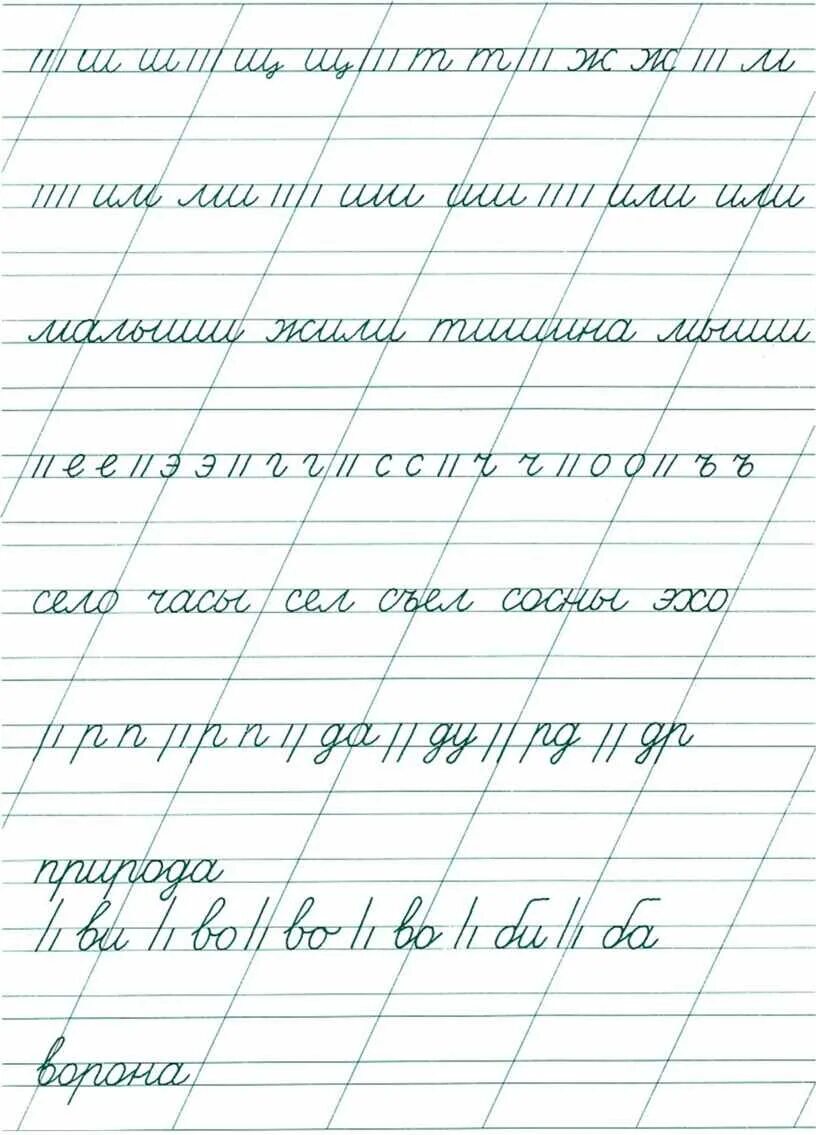 /// ш ш /// щ щ /// т т /// ж ж /// м
//// им ми //// иш ши //// или или
малыши жили тишина мыши
// е е // э э // г г // с с // ч ч // о о // ъ ъ
село часы сел съел сосны эхо
// р п // р п // да // ду // рд // др
природа
// ви // во // во // во // би // ба
ворона